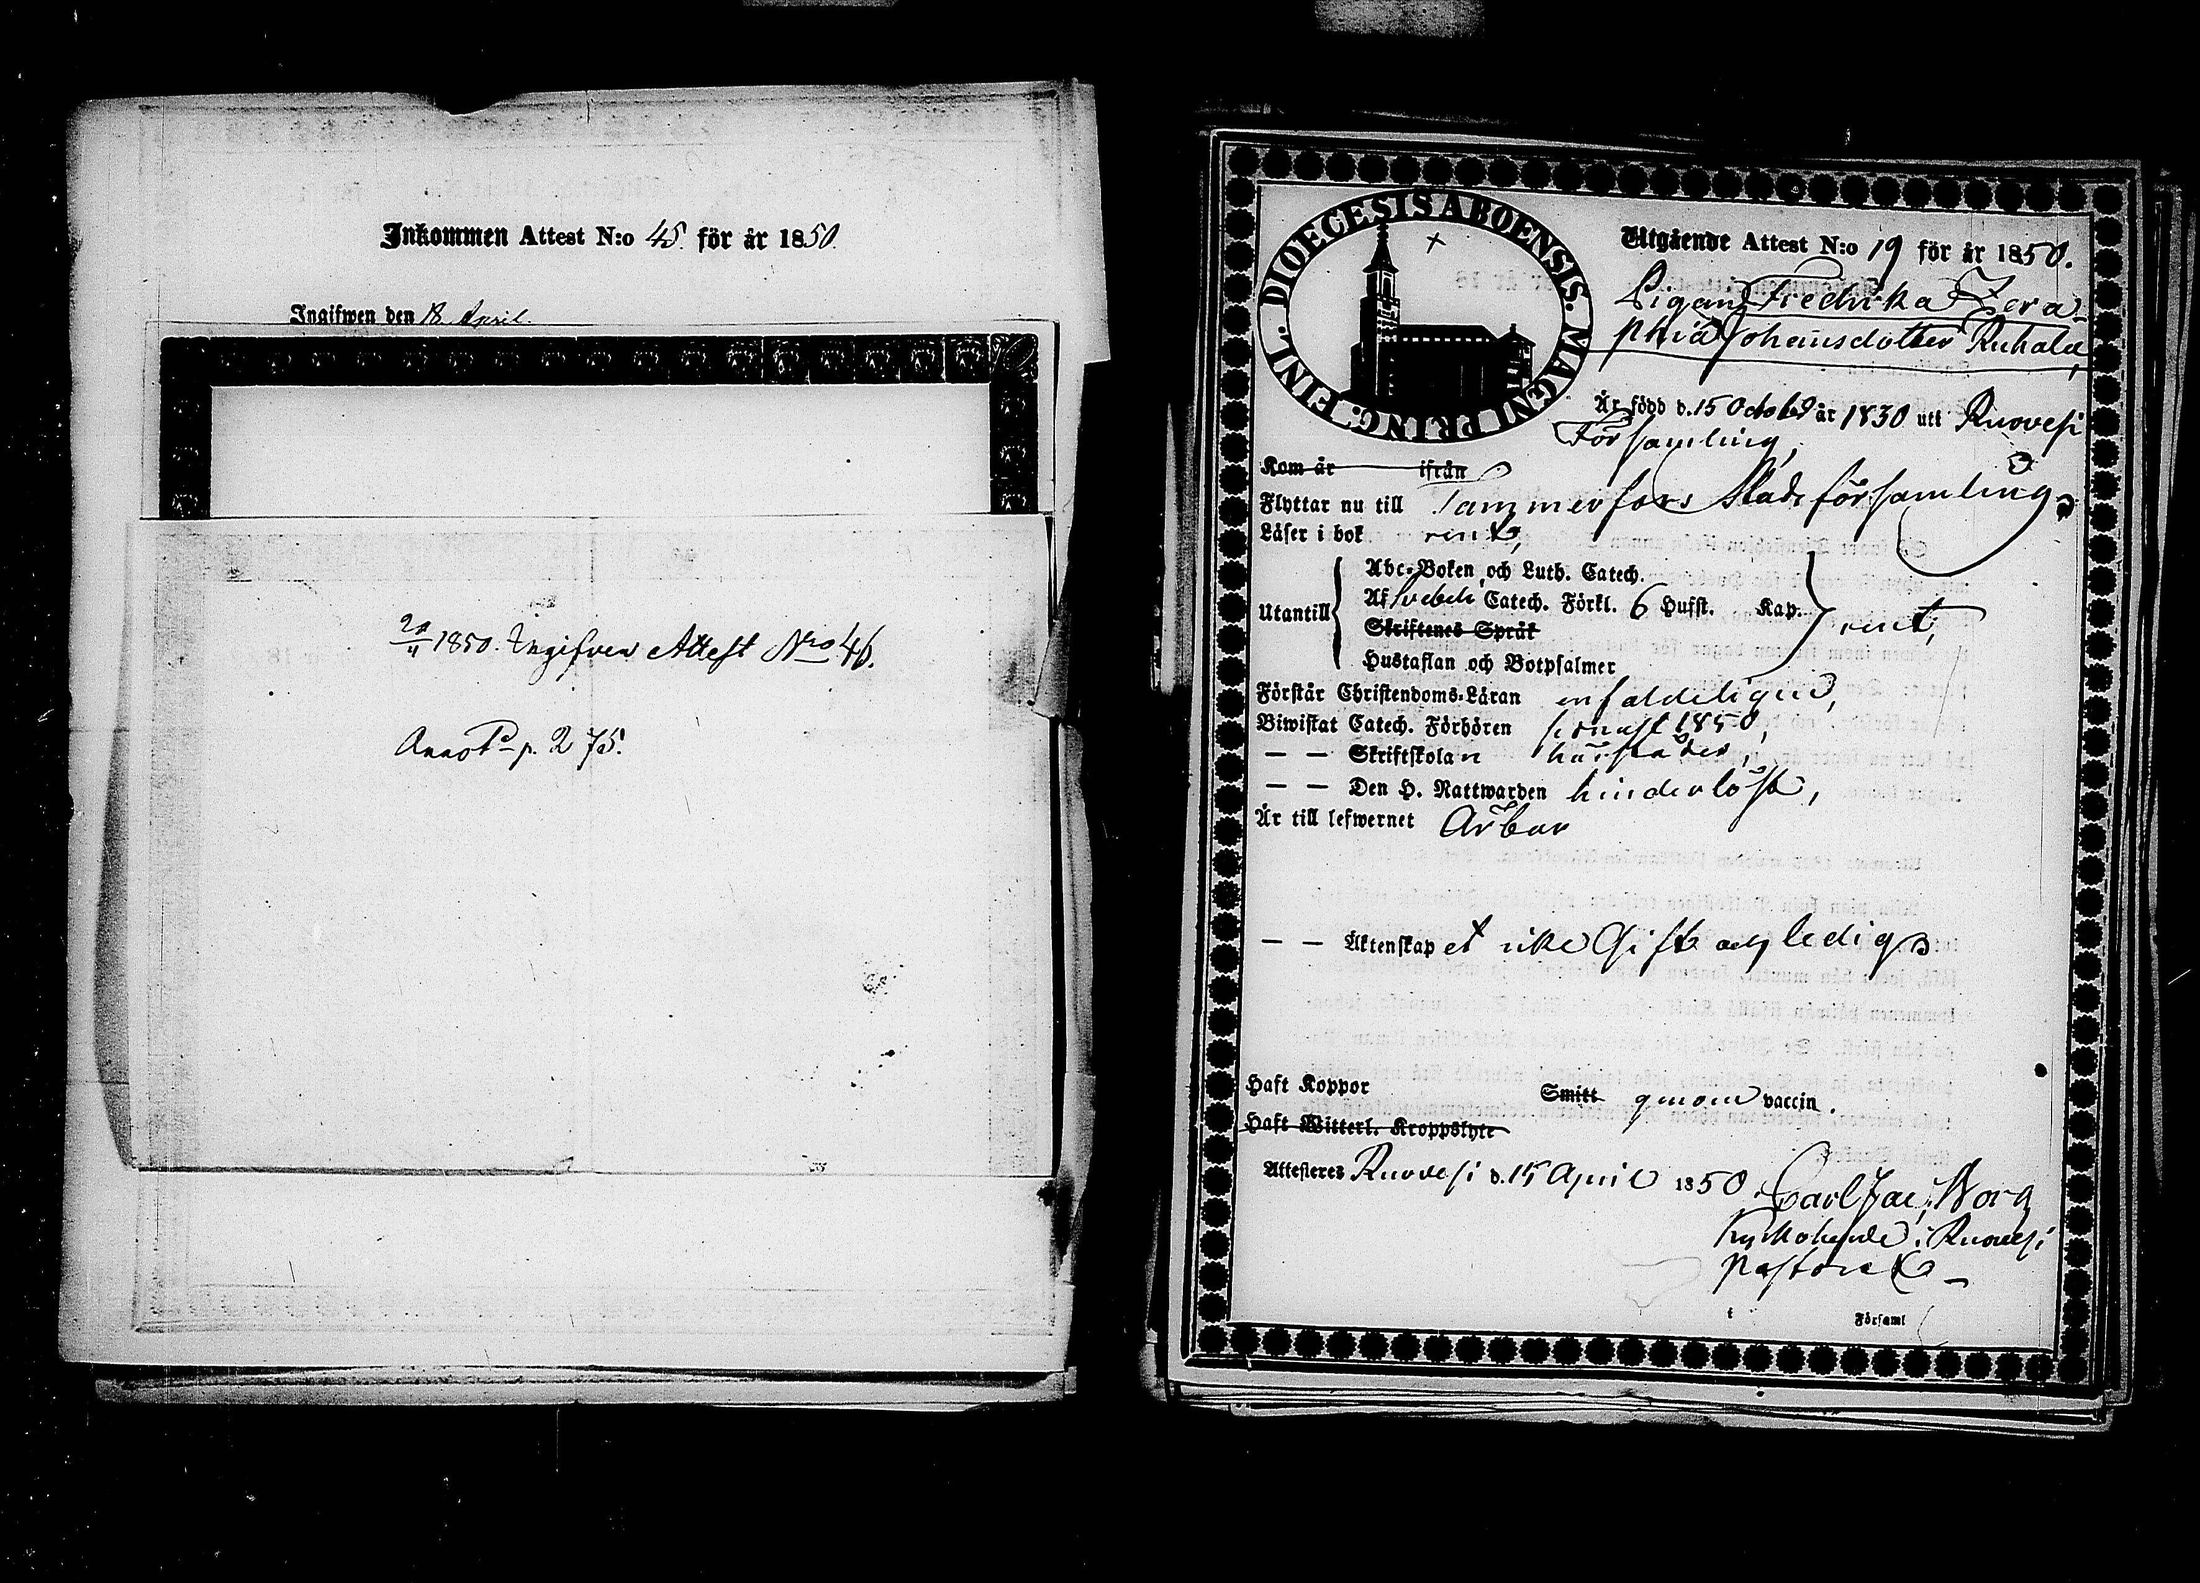 Inkommen Attest N:o 45. för år 1850.
Ingifwen den 18 April.
20/4 1850. Ingifven Attest Nro 46.
Annot. p. 275.
DIOECESIS ABOENSIS. MAGNI PRINC. FINL.
Utgående Attest N:o 19 för år 1850.
Pigan Fredrika Zera-
phia Johansdotter Ruhala,
Är född d. 15 October år 1830 uti Ruovesi
Församling,
Kom år ifrån
Flyttar nu till Tammerfors Stads församling,
Läser i bok rent,
Utantill
Abc-Boken och Luth. Catech.
Af Svebelii Catech. Förkl. 6 Hufst. Kap.
Skriftenes Språk
Hustaflan och Botpsalmer
rent,
Förstår Christendoms-Läran enfaldeligen,
Biwistat Catech. Förhören senast 1850,
— — Skriftskolan härstädes,
— — Den H. Nattwarden hinderlöst,
Är till lefwernet Ärbar
— — Äktenskap ej Gift och ledig.
Haft Koppor Smitt genom vaccin.
Haft Witterl. Kroppslyte
Attesteres Ruovesi d. 15 April 1850. Carl Jac. Borg
Kyrkoherde i Ruovesi
Pastorat
i Församl